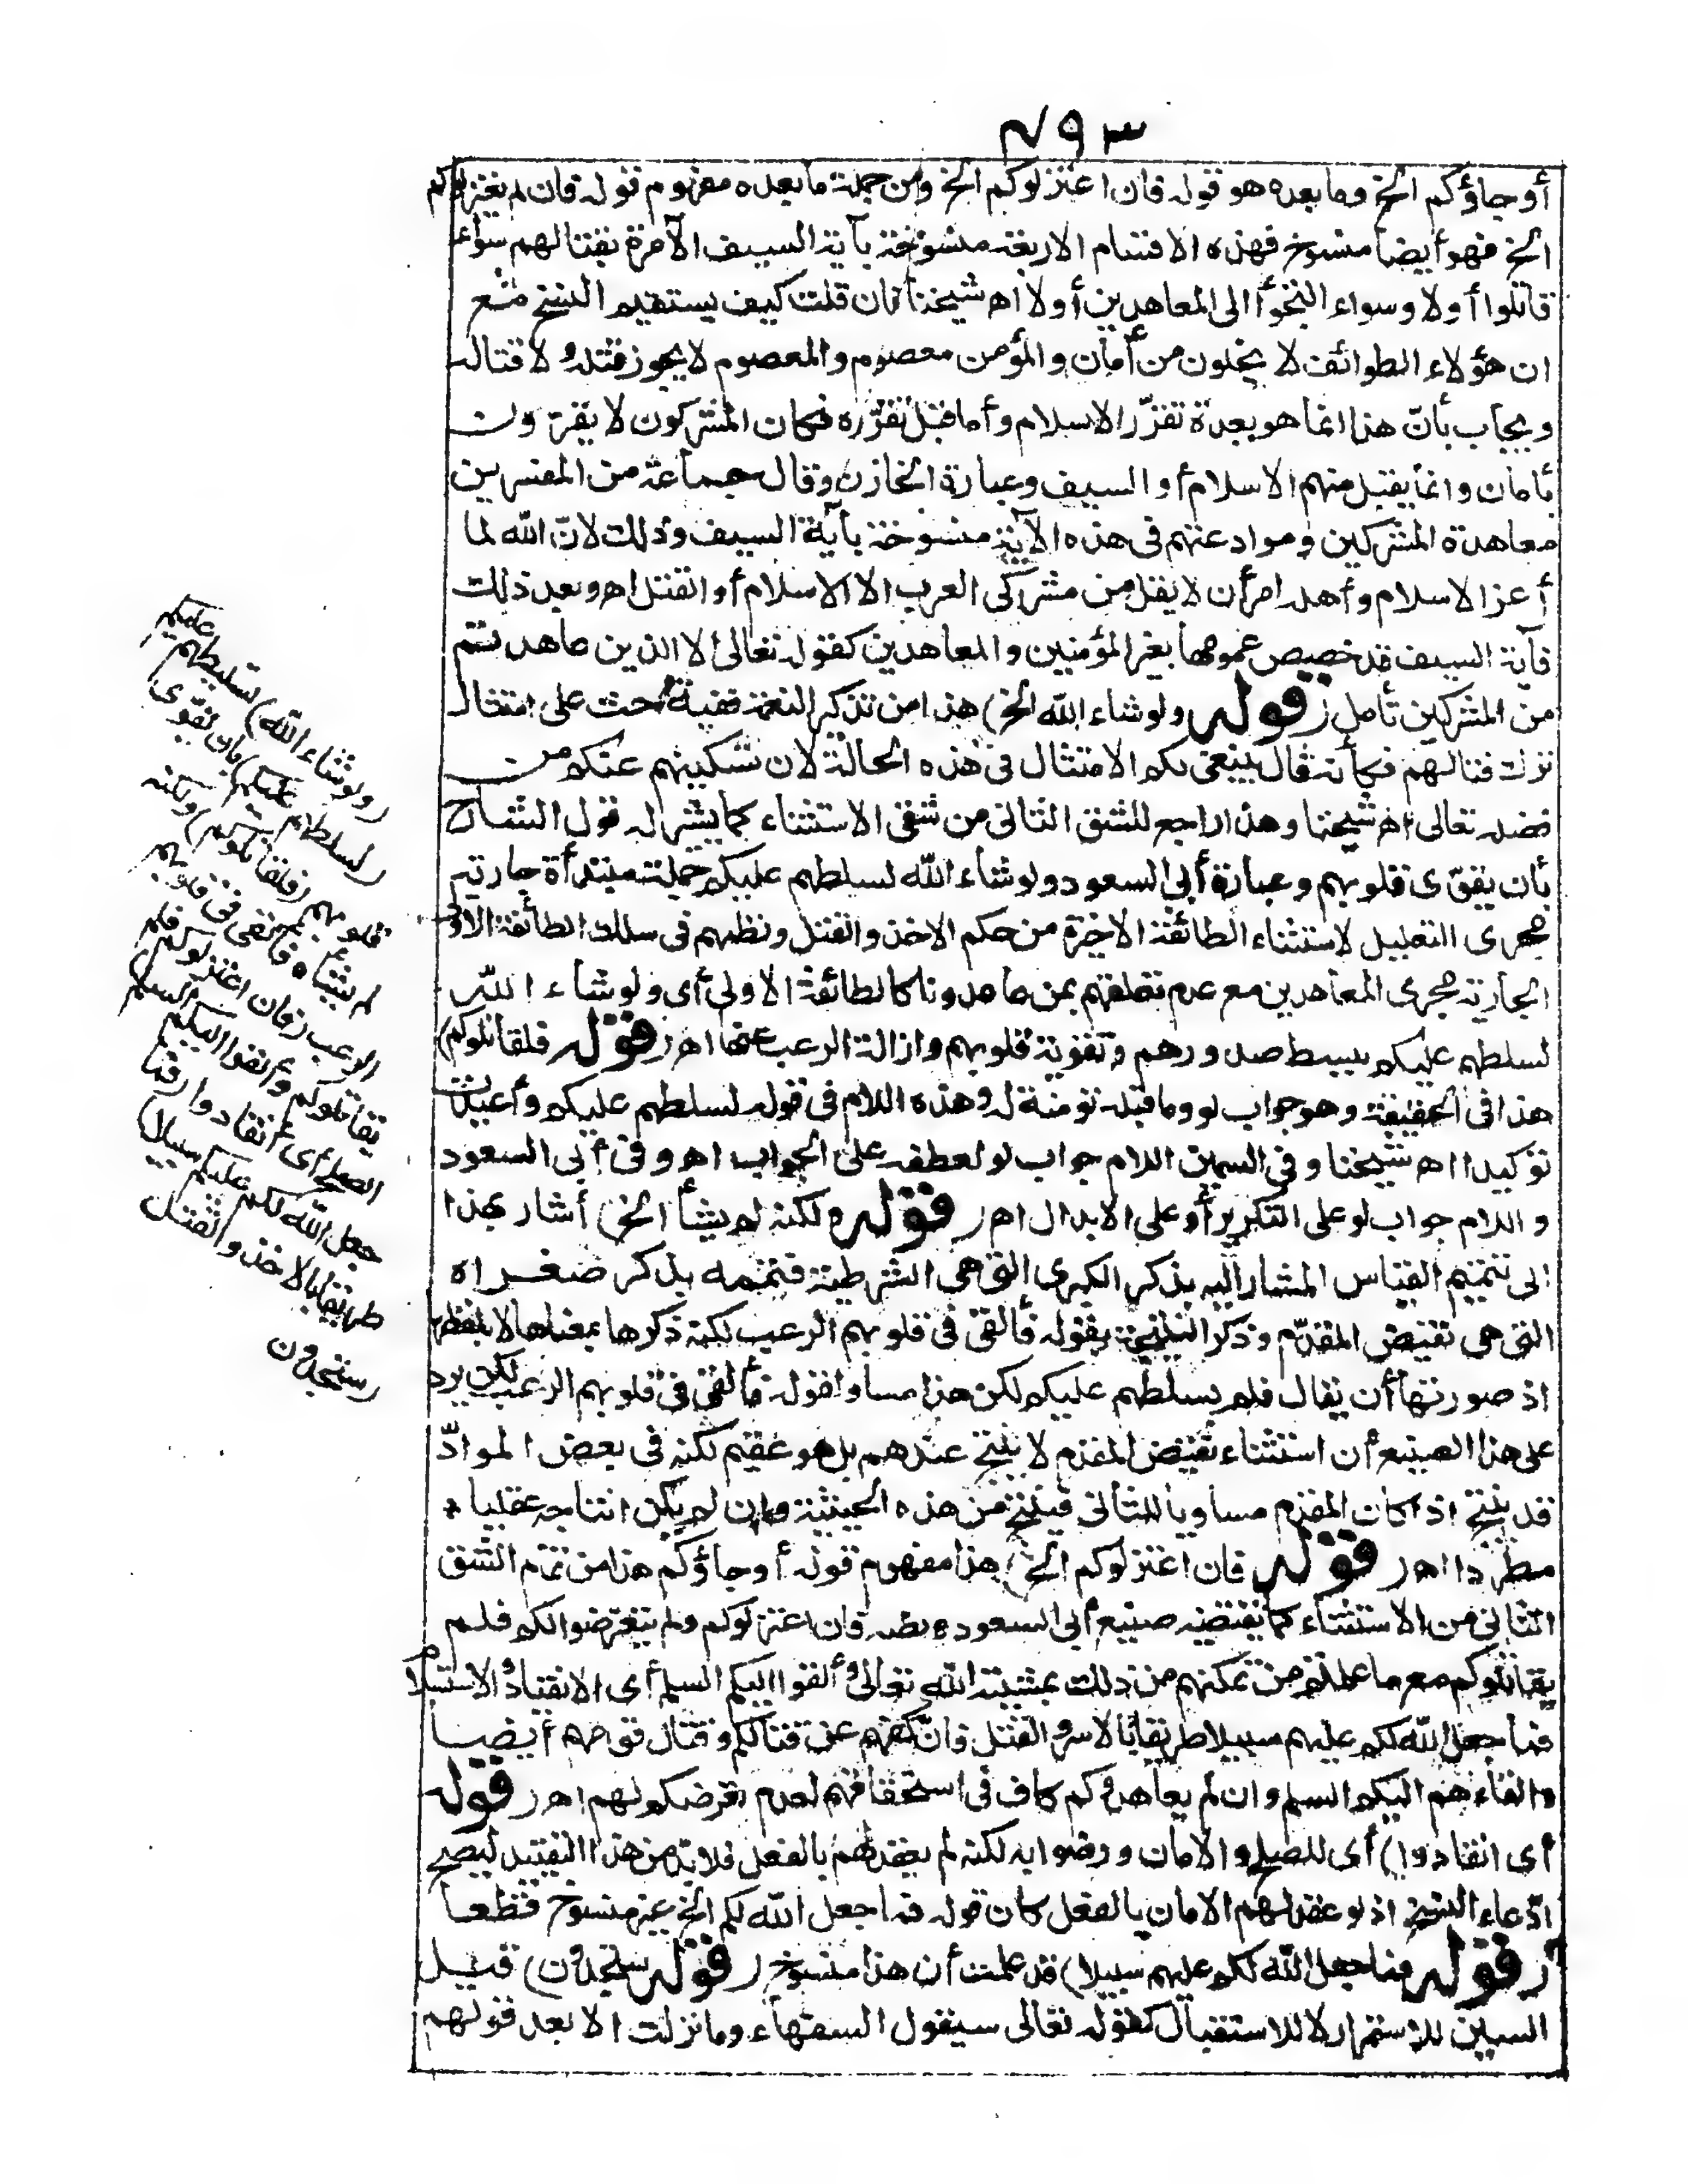 ٧٩٣
أو جاؤكم الخ وما بعده هو قوله فان اعتزلوكم الخ ومن جملة ما بعده مفهوم قوله فان لم يعتزلوكم
الخ فهو أيضا منسوخ فهذه الاقسام الاربعة منسوخة بآية السيف الآمرة بقتالهم سواء
قاتلوا أولا وسواء التجؤا الى المعاهدين أولا اه شيخنا فان قلت كيف يستقيم النسخ مع
ان هؤلاء الطوائف لا يخلون من أمان والمؤمن معصوم والمعصوم لا يجوز قتله ولا قتاله
ويجاب بأنّ هذا انما هو بعدة تقرّر الاسلام وأما قبل تقرّره فكان المشركون لا يقرّون
بأمان وانما يقبل منهم الاسلام أو السيف وعبارة الخازن وقال جماعة من المفسرين
معاهدة المشركين وموادعتهم فى هذه الآية منسوخة بآية السيف وذلك لانّ الله لما
أعز الاسلام وأهله امر أن لا يقبل من مشركى العرب الا الاسلام أو القتل اه وبعد ذلك
فآية السيف قد خصيص عمومها بغير المؤمنين والمعاهدين كقوله تعالى الا الذين عاهدتم
من المشركين تأمل (قوله ولو شاء الله الخ) هذا من تذكير النعمة ففيه حث على امتثال
ترك قتالهم فكأنه قال ينبغى لكم الامتثال فى هذه الحالة لان تسكينهم عنكم من
فضله تعالى اه شيخنا وهذا راجع للشق الثانى من شقى الاستثناء كما يشير له قول الشارح
بأن يقوّى قلوبهم وعبارة أبى السعود ولو شاء الله لسلطهم عليكم جملة مبتدأة جارية
مجرى التعليل لاستثناء الطائفة الاخيرة من حكم الاخذ والقتل ونظمهم فى سلك الطائفة الاولى
الجارية مجرى المعاهدين مع عدم تعلقهم بمن عاهدونا كالطائفة الاولى أى ولو شاء الله
لسلطهم عليكم ببسط صدورهم وتقوية قلوبهم وازالة الرعب عنها اه (قوله فلقاتلوكم)
هذا فى الحقيقة وهو جواب لو وما قبله توطئة له وهذه اللام فى قوله لسلطهم عليكم وأعيدت
توكيدا اه شيخنا وفى السمين اللام جواب لو لعطفه على الجواب اه وفى أبى السعود
واللام جواب لو على التكرير أو على الابدال اه (قوله ولكنه لم يشأ الخ) أشار بهذا
الى تتميم القياس المشار اليه بذكر الكبرى التى هى الشرطية فتممه بذكر صغراه
التى هى نقيض المقدّم وذكر النتيجة بقوله فألقى فى قلوبهم الرعب لكنه ذكرها بمعناها لا بلفظها
اذ صورتها أن يقال فلم يسلطهم عليكم لكن هذا مساو لقوله فألقى فى قلوبهم الرعب لكن يرد
على هذا الصنيع أن استثناء نقيض المقدم لا ينتج عندهم بل هو عقيم لكنه فى بعض الموادّ
قد ينتج اذا كان المقدم مساويا للتالى فينتج من هذه الحيثية وان لم يكن انتاجه عقليا
مطردا اه (قوله فان اعتزلوكم الخ) هذا مفهوم قوله أو جاؤكم هذا من تمام الشق
الثانى من الاستثناء كما يقتضيه صنيع أبى السعود ونصه فان اعتزلوكم ولم يتعرّضوا لكم فلم
يقاتلوكم مع ما علمتم من تمكنهم من ذلك بمشيئة الله تعالى وألقوا اليكم السلم أى الانقياد والاستسلام
فما جعل الله لكم عليهم سبيلا طريقا بالاسر والقتل فانّ كفهم عن قتالكم وقتال قومهم أيضا
والقاءهم اليكم السلم وان لم يعاهدوكم كاف فى استحقاقهم لعدم تعرضكم لهم اه (قوله
أى انقادوا) أى للصلح والامان ورضوا به لكنه لم يعقد لهم بالفعل فلا بدّ من هذا التقييد ليصح
ادّعاء النسخ اذ لو عقد لهم الامان بالفعل كان قوله فما جعل الله لكم الخ غير منسوخ قطعا
(قوله فما جعل الله لكم عليهم سبيلا) قد علمت أن هذا منسوخ (قوله ستجدون) قيل
السين للاستمرار لا للاستقبال كقوله تعالى سيقول السفهاء وما نزلت الا بعد قولهم
(ولو شاء الله) تسليطهم عليكم
(لسلطهم عليكم) بأن يقوّى
قلوبهم (فلقاتلوكم) ولكنه
لم يشأه فألقى فى قلوبهم
الرعب (فان اعتزلوكم فلم
يقاتلوكم وألقوا اليكم السلم)
الصلح أى انقادوا (فما
جعل الله لكم عليهم سبيلا)
طريقا بالاخذ والقتل
(ستجدون